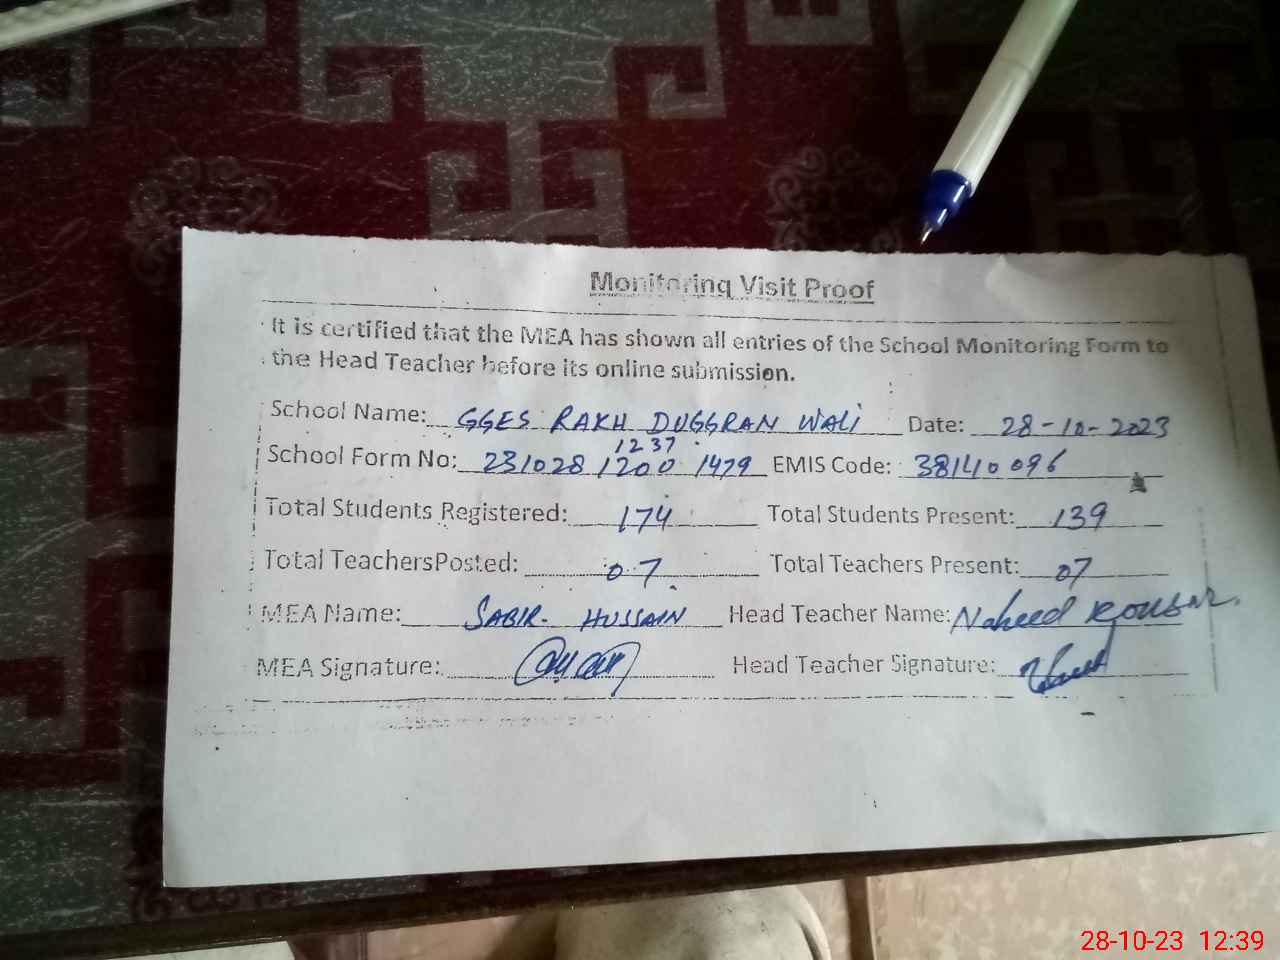 Monitoring Visit Proof
It is certified that the MEA has shown all entries of the School Monitoring Form to
the Head Teacher before its online submission.
School Name: GGES RAKH DUGGRAN WALI Date: 28-10-2023
1237
School Form No: 231028 1200 1479 EMIS Code: 38140096
Total Students Registered: 174 Total Students Present: 139
Total TeachersPosted: 07 Total Teachers Present: 07
MEA Name: SABIR. HUSSAIN Head Teacher Name: Naheed Kousar.
MEA Signature: Head Teacher Signature:
28-10-23 12:39